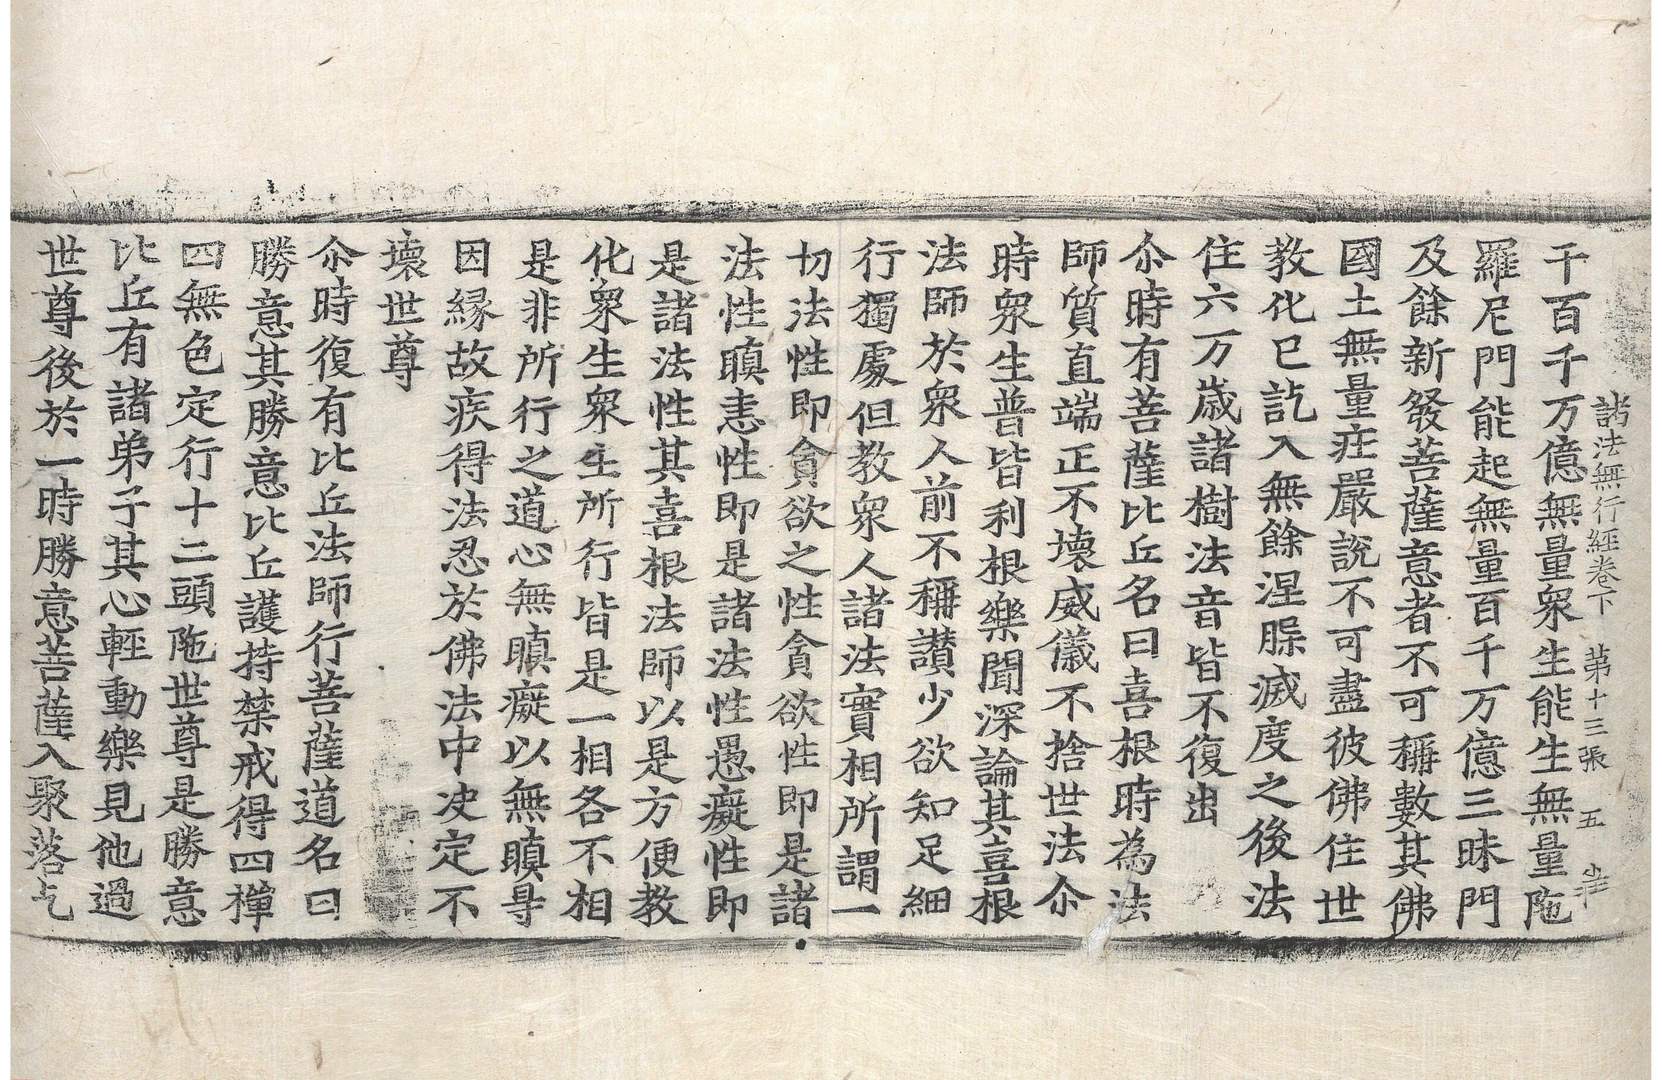 諸法無行經卷下 第十三張 五
千百千万億無量衆生能生無量陁
羅尼門能起無量百千万億三昧門
及餘新發菩薩意者不可稱數其佛
國土無量庄嚴說不可盡彼佛住世
教化已訖入無餘涅槃滅度之後法
住六万歲諸樹法音皆不復出
尒時有菩薩比丘名曰喜根時為法
師質直端正不壞威儀不捨世法尒
時衆生普皆利根樂聞深論其喜根
法師於衆人前不稱讃少欲知足細
行獨處但教衆人諸法實相所謂一
切法性即貪欲之性貪欲性即是諸
法性瞋恚性即是諸法性愚癡性即
是諸法性其喜根法師以是方便教
化衆生衆生所行皆是一相各不相
是非所行之道心無瞋癡以無瞋㝵
因緣故疾得法忍於佛法中决定不
壞世尊
尒時復有比丘法師行菩薩道名曰
勝意其勝意比丘護持禁戒得四禪
四無色定行十二頭陁世尊是勝意
比丘有諸弟子其心輕動樂見他過
世尊後於一時勝意菩薩入聚落乞